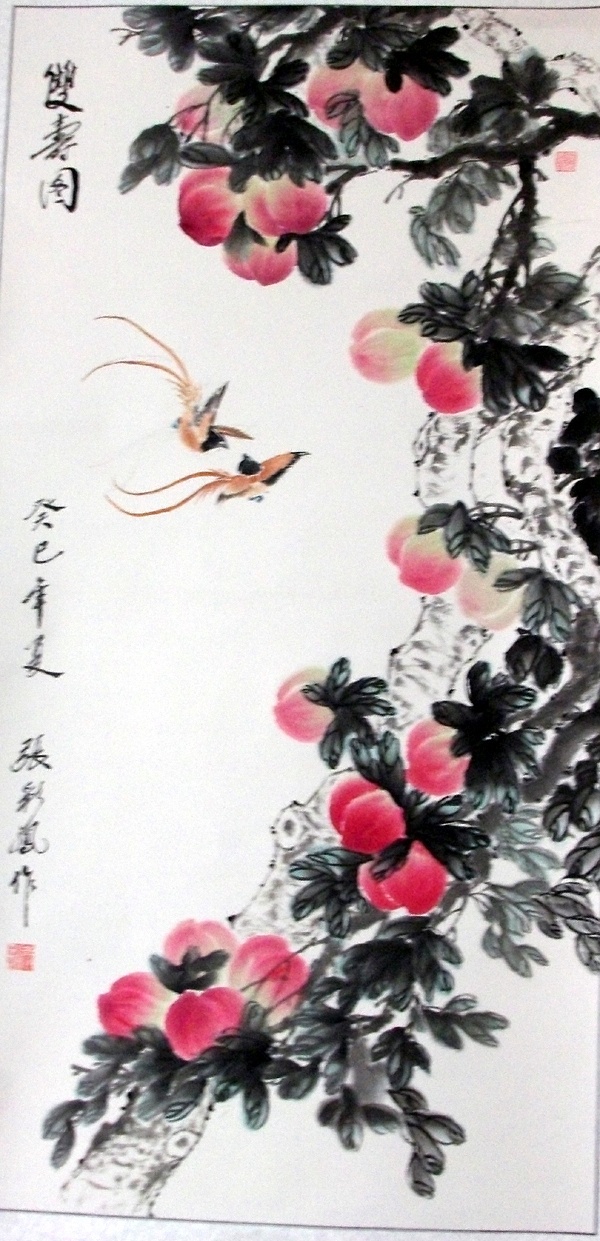 雙壽图
癸巳年夏
張彩鳳作